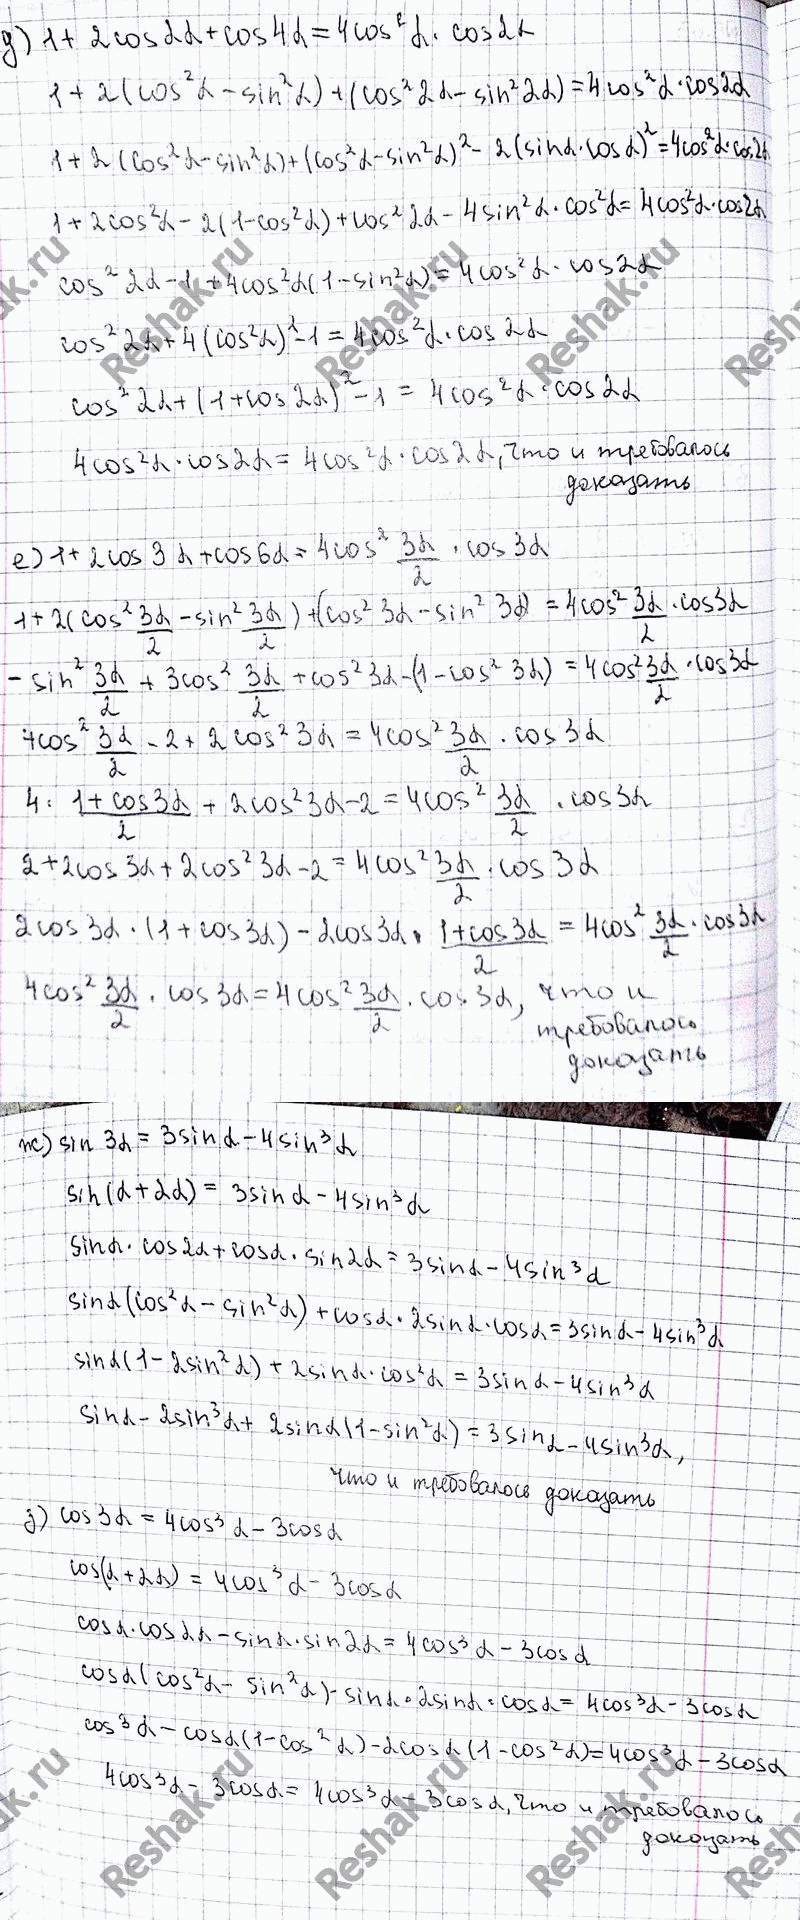 д) 1 + 2cos2α + cos4α = 4cos²α · cos2α
1 + 2(cos²α - sin²α) + (cos²2α - sin²2α) = 4cos²α · cos2α
1 + 2(cos²α - sin²α) + (cos²α - sin²α)² - 2(sinα · cosα)² = 4cos²α · cos2α
1 + 2cos²α - 2(1 - cos²α) + cos²2α - 4sin²α · cos²α = 4cos²α · cos2α
cos²2α - 1 + 4cos²α(1 - sin²α) = 4cos²α · cos2α
cos²2α + 4(cos²α)² - 1 = 4cos²α · cos2α
cos²2α + (1 + cos2α)² - 1 = 4cos²α · cos2α
4cos²α · cos2α = 4cos²α · cos2α, что и требовалось
доказать
е) 1 + 2cos3α + cos6α = 4cos² 3α/2 · cos3α
1 + 2(cos² 3α/2 - sin² 3α/2) + (cos²3α - sin²3α) = 4cos² 3α/2 · cos3α
- sin² 3α/2 + 3cos² 3α/2 + cos²3α - (1 - cos²3α) = 4cos² 3α/2 · cos3α
4cos² 3α/2 - 2 + 2cos²3α = 4cos² 3α/2 · cos3α
4 · (1 + cos3α)/2 + 2cos²3α - 2 = 4cos² 3α/2 · cos3α
2 + 2cos3α + 2cos²3α - 2 = 4cos² 3α/2 · cos3α
2cos3α · (1 + cos3α) - 2cos3α · (1 + cos3α)/2 = 4cos² 3α/2 · cos3α
4cos² 3α/2 · cos3α = 4cos² 3α/2 · cos3α, что и
требовалось
доказать
ж) sin3α = 3sinα - 4sin³α
sin(α + 2α) = 3sinα - 4sin³α
sinα · cos2α + cosα · sin2α = 3sinα - 4sin³α
sinα(cos²α - sin²α) + cosα · 2sinα · cosα = 3sinα - 4sin³α
sinα(1 - 2sin²α) + 2sinα · cos²α = 3sinα - 4sin³α
sinα - 2sin³α + 2sinα(1 - sin²α) = 3sinα - 4sin³α,
что и требовалось доказать
з) cos3α = 4cos³α - 3cosα
cos(α + 2α) = 4cos³α - 3cosα
cosα · cos2α - sinα · sin2α = 4cos³α - 3cosα
cosα(cos²α - sin²α) - sinα · 2sinα · cosα = 4cos³α - 3cosα
cos³α - cosα(1 - cos²α) - 2cosα(1 - cos²α) = 4cos³α - 3cosα
4cos³α - 3cosα = 4cos³α - 3cosα, что и требовалось
доказать
Reshak.ru
Reshak.ru
Reshak.ru
Reshak.ru
Reshak.ru
Reshak.ru